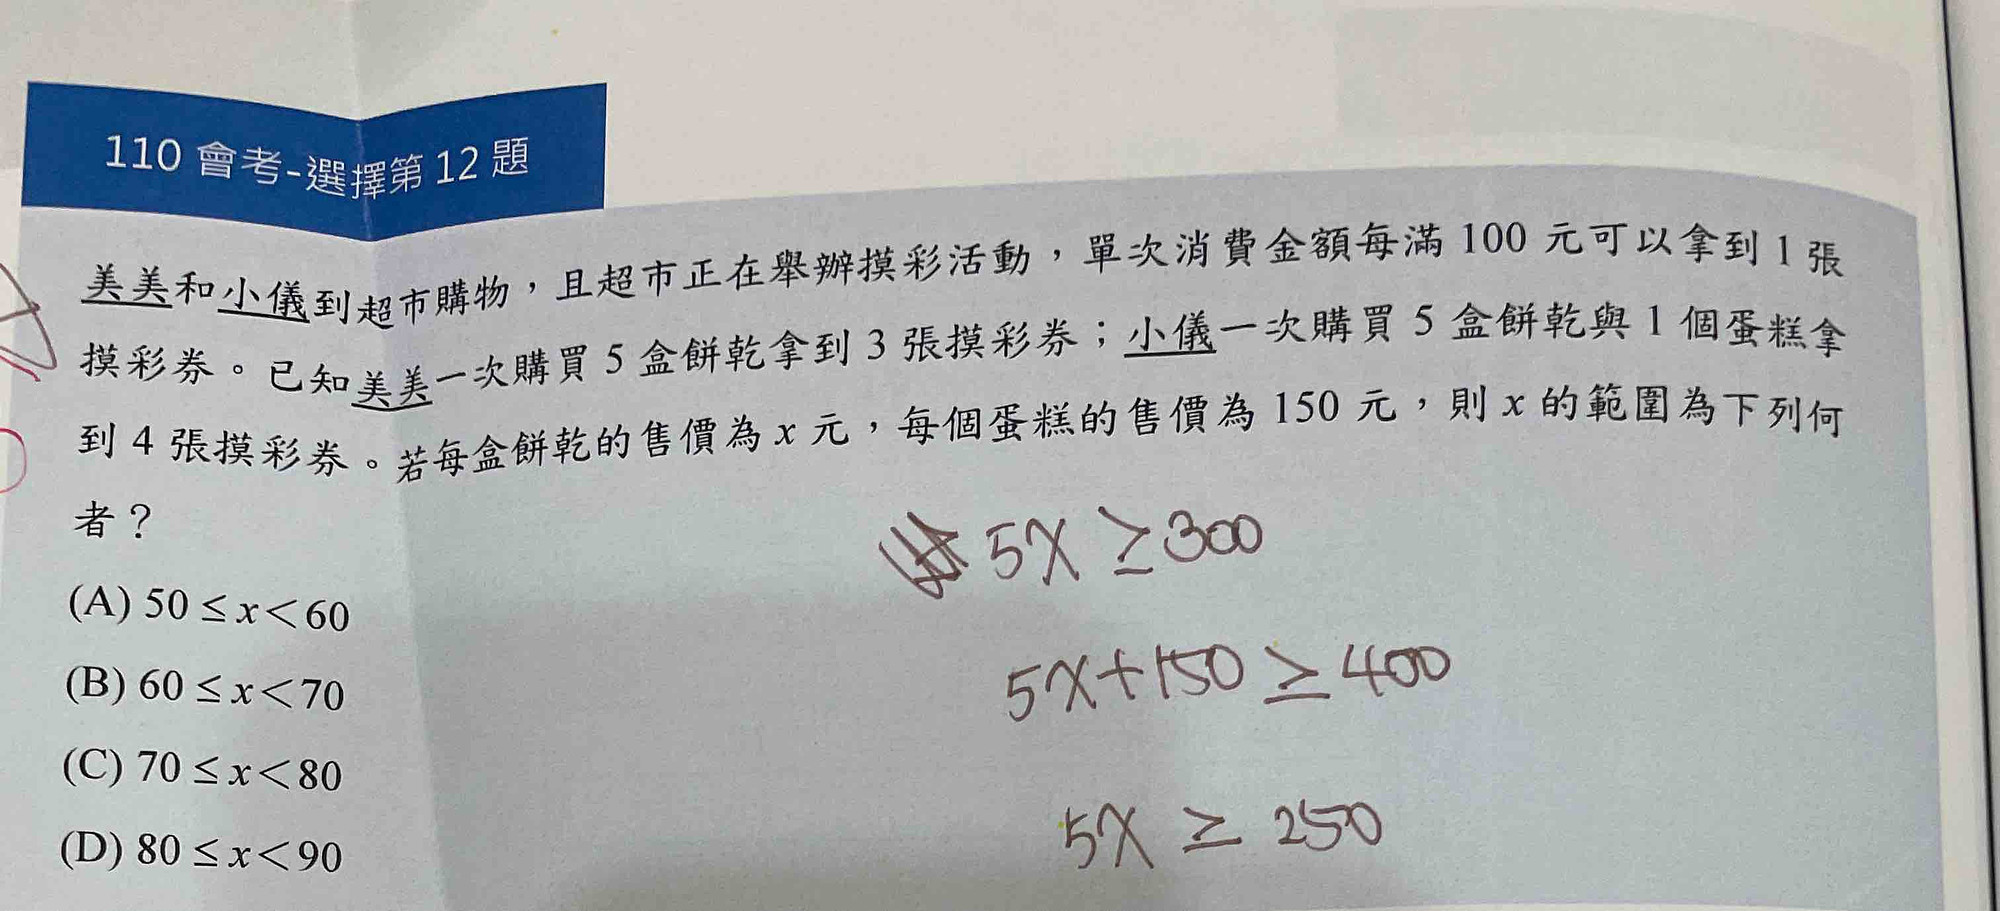 110 會考-選擇第 12 題
美美和小儀到超市購物，且超市正在舉辦摸彩活動，單次消費金額每滿 100 元可以拿到 1 張
摸彩券。已知美美一次購買 5 盒餅乾拿到 3 張摸彩券；小儀一次購買 5 盒餅乾與 1 個蛋糕拿
到 4 張摸彩券。若每盒餅乾的售價為 x 元，每個蛋糕的售價為 150 元，則 x 的範圍為下列何
者？
5X ≥ 300
(A) 50 ≤ x＜60
5X+150 ≥ 400
(B) 60 ≤ x＜70
(C) 70 ≤ x＜80
5X ≥ 250
(D) 80 ≤ x＜90